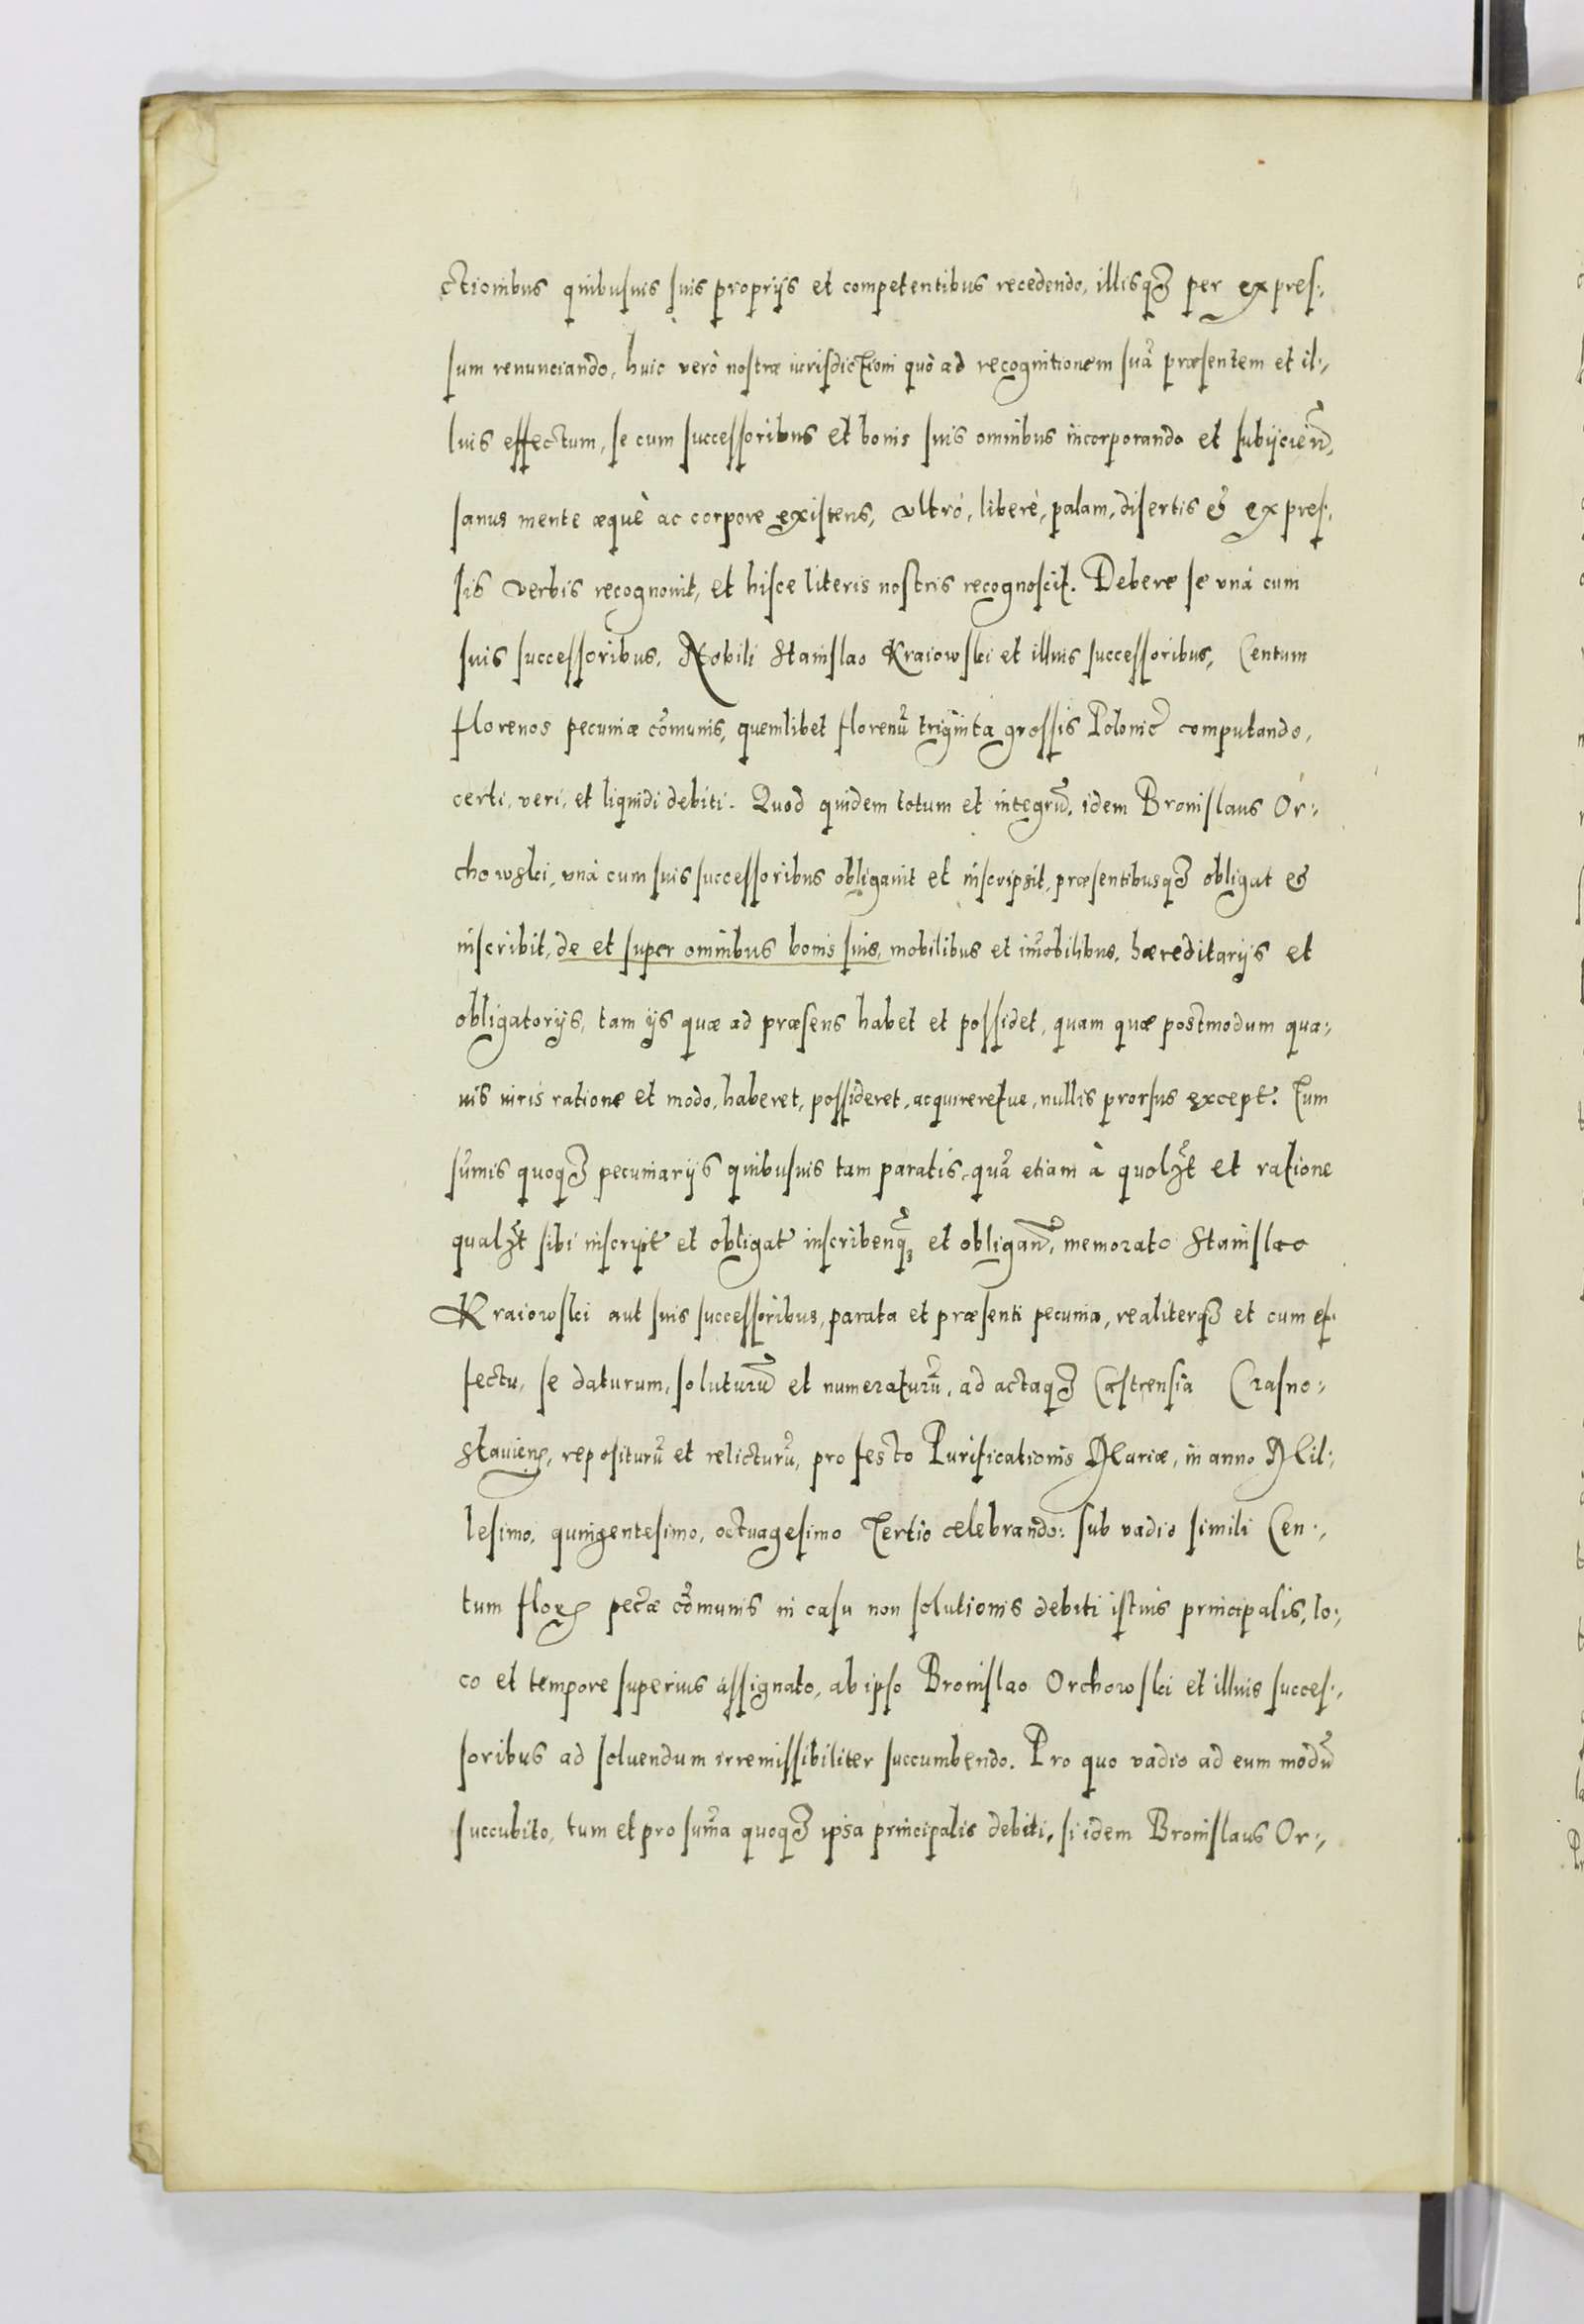 ctionibus quibusuis suis proprijs et competentibus recedendo, illisqȝ per expres:,
sum renunciando, huic verò nostræ iurisdictioni quò ad recognitionem suā præsentem et il:,
lius effectum, se cum successoribus et bonis suis omnibus incorporando et subijcien̄,
sanus mente æquè ac corpore existens, vltrò, liberè, palam, disertis & expres:,
sis verbis recognouit, et hisce literis nostris recognoscit. Debere se vnà cum
suis successoribus, Nobili Stanislao Kraiowski et illius successoribus, Centum
florenos pecuniæ cōmunis, quemlibet florenū triginta grossis Polonic̄ computando,
certi, veri, et liquidi debiti. Quod quidem totum et integrū, idem Bronislaus Or:,
chowski, vnà cum suis successoribus obligauit et inscripsit, præsentibusqȝ obligat &
inscribit, de et super omnibus bonis suis, mobilibus et im̄obilibus, hæreditarijs et
obligatorijs, tam ijs quæ ad præsens habet et possidet, quam quæ postmodum qua:,
uis iuris ratione et modo, haberet, possideret, acquireretue, nullis prorsus except̄. Tum
sūmis quoqȝ pecuniarijs quibusuis tam paratis, quā etiam à quolȝt et ratione
qualȝt sibi inscript̄ et obligat̄ inscribenqȝ et obligan̄, memorato Stanislao
Kraiowski aut suis successoribus, parata et præsenti pecunia, realiterqȝ et cum ef:
fectu, se daturum, soluturū et numeraturū, ad actaqȝ Castrensia Crasno:,
stauien̄, repositurū et relicturū, pro festo Purificationis Mariæ, in anno Mil:,
lesimo, quingentesimo, octuagesimo Tertio celebrando: sub vadio simili Cen:,
tum flor̄ pec̄æ cōmunis in casu non solutionis debiti istius principalis, lo:,
co et tempore superius assignato, ab ipso Bronislao Orchowski et illius succes:,
soribus ad soluendum irremissibiliter succumbendo. Pro quo vadio ad eum modū
succubito, tum et pro sum̄a quoqȝ ipsa principalis debiti, si idem Bronislaus Or:,